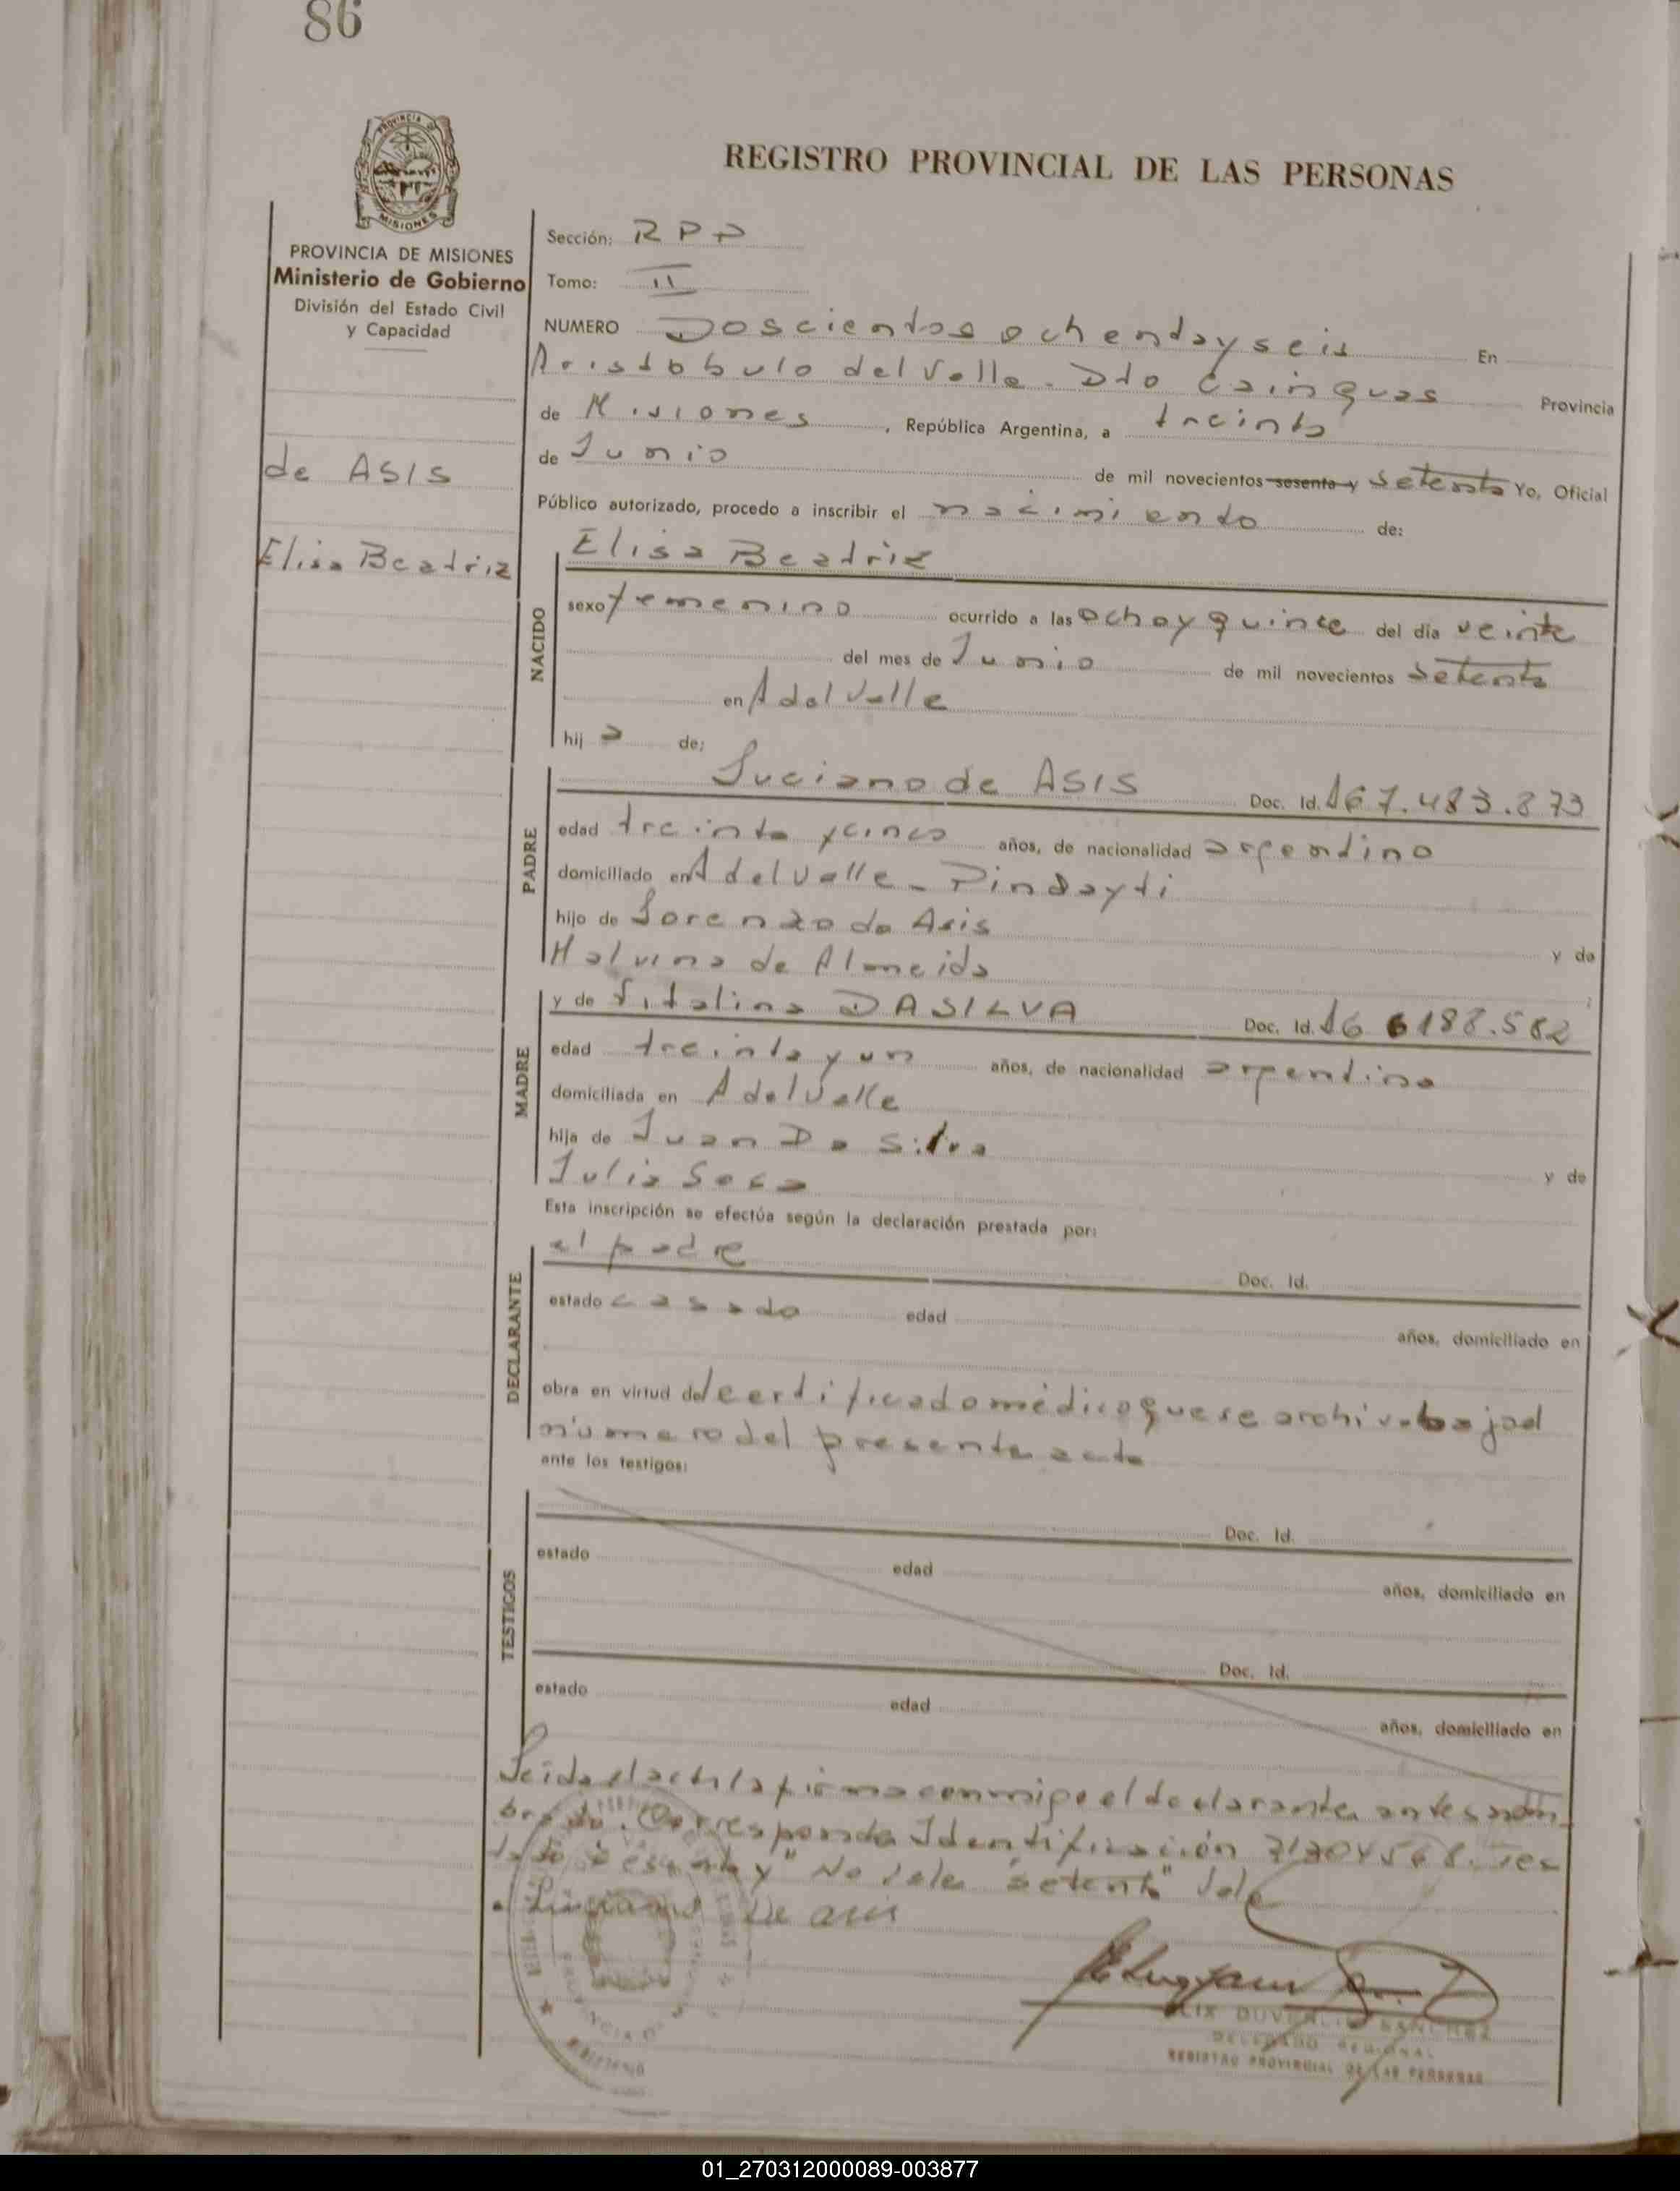 86
REGISTRO PROVINCIAL DE LAS PERSONAS
PROVINCIA DE MISIONES
Ministerio de Gobierno
División del Estado Civil
y Capacidad
de ASIS
Elisa Beatriz
Sección: RPP
Tomo: II
NUMERO Doscientos ochentayseis En
Aristobulo del Valle. Dto Cainguas Provincia
de Misiones, República Argentina, a treinta
de Junio de mil novecientos sesenta y setenta Yo, Oficial
Público autorizado, procedo a inscribir el nacimiento de:
NACIDO
Elisa Beatriz
sexo femenino ocurrido a las ocho y quince del día veinte
del mes de Junio de mil novecientos setenta
en A del Valle
hij a de:
PADRE
Luciano de ASIS Doc. Id. M 7.483.873
edad treinta y cinco años, de nacionalidad argentino
domiciliado en A del Valle - Pindayti
hijo de Lorenzo de Asis y de
Malvina de Almeida
MADRE
y de Vitalina DASILVA Doc. Id. 6188.582
edad treinta y un años, de nacionalidad argentina
domiciliada en A del Valle
hija de Juan Da Silva y de
Julia Sosa
Esta inscripción se efectúa según la declaración prestada por:
DECLARANTE
el padre Doc. Id.
estado casado edad años, domiciliado en
obra en virtud del certificado médico que se archiva bajo el
número del presente acta
ante los testigos:
TESTIGOS
Doc. Id.
estado edad años, domiciliado en
Doc. Id.
estado edad años, domiciliado en
Leida el acta la firma conmigo el declarante antes nom
brado. Corresponda Identificación
"sesenta y" No Vale "setenta" Vale
Luciano De asis
FELIX DUVERLIZ SANCHEZ
DELEGADO REGIONAL
REGISTRO PROVINCIAL DE LAS PERSONAS
01_270312000089-003877